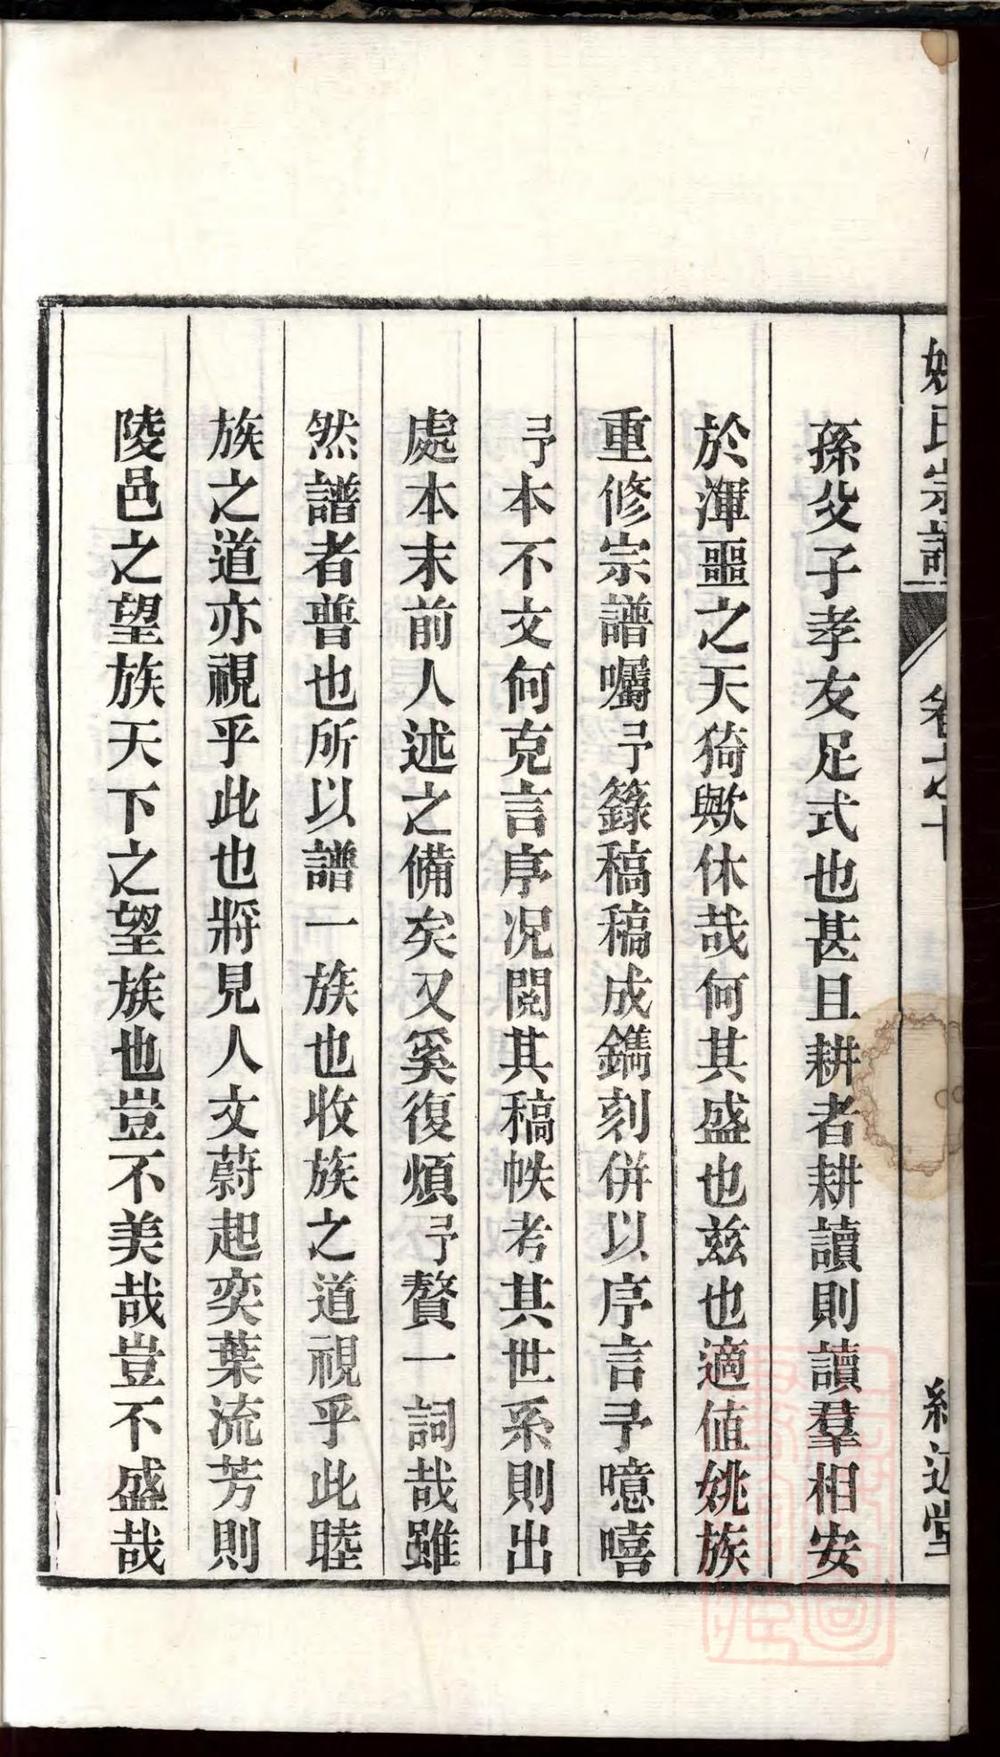 姚氏宗譜
卷之十
孫父子孝友足式也甚且耕者耕讀則讀羣相安
於渾噩之天猗歟休哉何其盛也茲也適值姚族
重修宗譜囑予籙稿稿成鐫刻併以序言予噫嘻
予本不文何克言序况閱其稿帙考其世系則出
處本末前人述之備矣又奚復煩予贅一詞哉雖
然譜者普也所以譜一族也收族之道視乎此睦
族之道亦視乎此也將見人文蔚起奕葉流芳則
陵邑之望族天下之望族也豈不美哉豈不盛哉